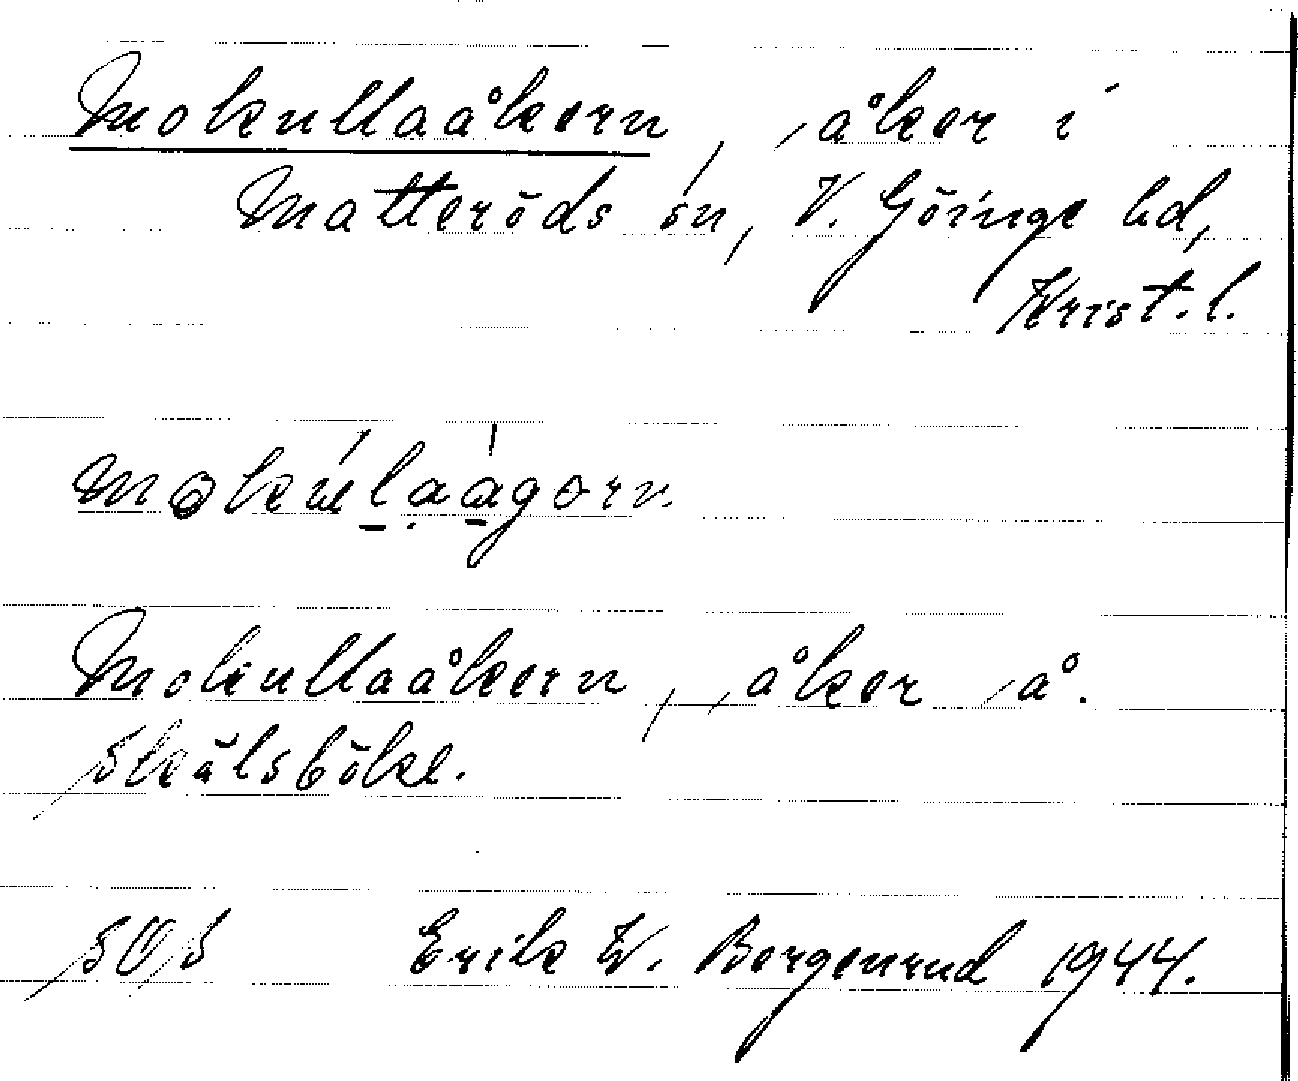 Mokullaåkern, åker i
Matteröds sn, V. Göinge hd,
Krist. l.
Mokullaåkern, åker å.
Skålsböke.
SOS Erik W. Bergenrud 1944.